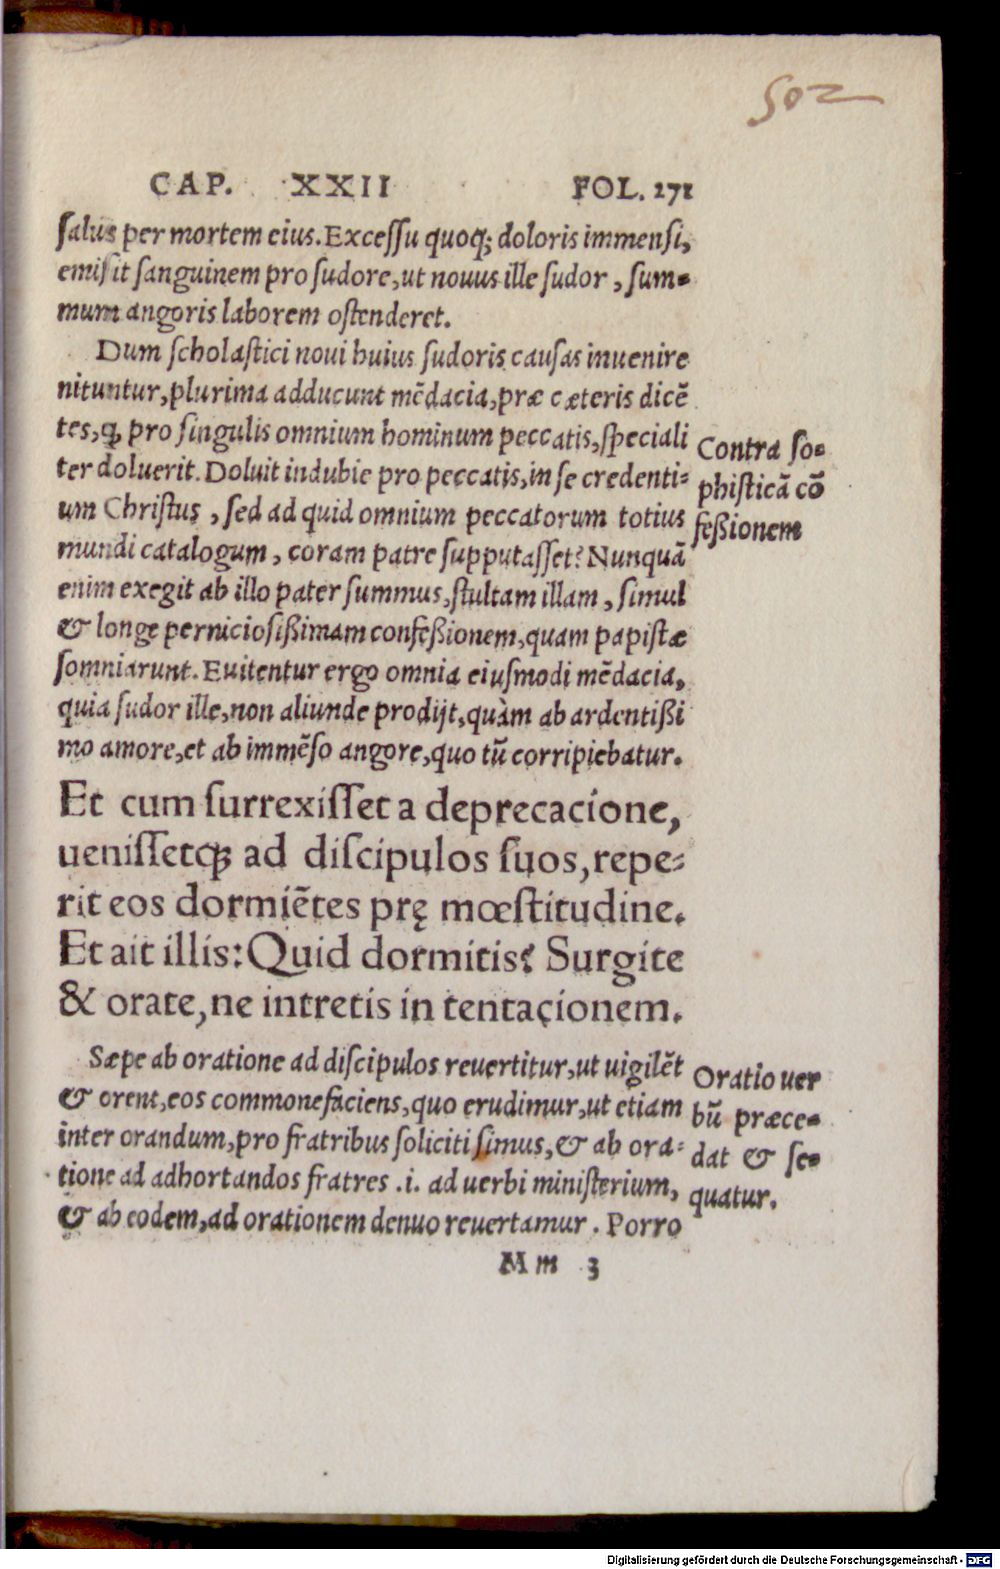 502
CAP. XXII FOL. 271
ſalus per mortem eius. Exceſſu quoq; doloris immenſi,
emiſit ſanguinem pro ſudore, ut nouus ille ſudor, ſum-
mum angoris laborem oſtenderet.
Dum ſcholaſtici noui huius ſudoris cauſas inuenire
nituntur, plurima adducunt mēdacia, præ cæteris dicē
tes, ꝙ pro ſingulis omnium hominum peccatis, ſpeciali
ter doluerit. Doluit indubie pro peccatis, in ſe credenti-
um Chriſtus, ſed ad quid omnium peccatorum totius
mundi catalogum, coram patre ſupputaſſet? Nunquā
enim exegit ab illo pater ſummus, ſtultam illam, ſimul
& longe pernicioſißimam confeßionem, quam papiſtæ
ſomniarunt. Euitentur ergo omnia eiuſmodi mēdacia,
quia ſudor ille, non aliunde prodijt, quàm ab ardentißi
mo amore, et ab immēſo angore, quo tū corripiebatur.
Contra ſo-
phiſticā cō
feßionem
Et cum ſurrexiſſet a deprecacione,
ueniſſetq; ad diſcipulos ſuos, repe-
rit eos dormiētes prę mœſtitudine.
Et ait illis: Quid dormitis? Surgite
& orate, ne intretis in tentacionem.
Sæpe ab oratione ad diſcipulos reuertitur, ut uigilēt
& orent, eos commonefaciens, quo erudimur, ut etiam
inter orandum, pro fratribus ſoliciti ſimus, & ab ora-
tione ad adhortandos fratres .i. ad uerbi miniſterium,
& ab eodem, ad orationem denuo reuertamur. Porro
Oratio uer
bū præce-
dat & ſe-
quatur.
M m 3
Digitalisierung gefördert durch die Deutsche Forschungsgemeinschaft - DFG